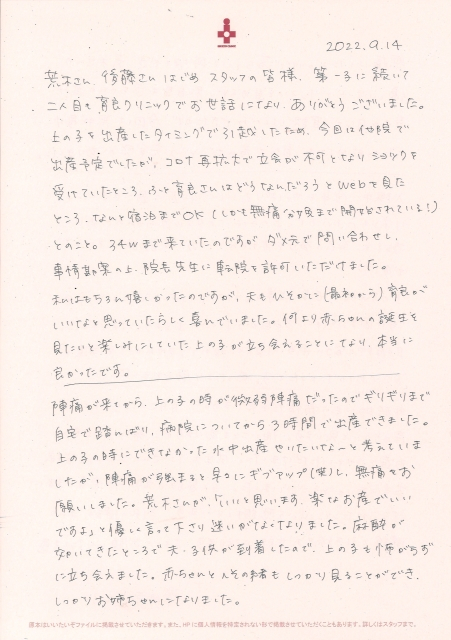 2022.9.14
荒木さん、後藤さんはじめスタッフの皆様、第一子に続いて
二人目も育良クリニックでお世話になり、ありがとうございました。
上の子を出産したタイミングで引越したため、今回は他院で
出産予定でしたが、コロナ再拡大で立会が不可となりショックを
受けていたところ、ふと育良さんはどうなんだろうとwebを見た
ところ、なんと宿泊までOK（しかも無痛分娩まで開始されている！）
とのこと。34wまで来ていたのですがダメ元で問い合わせし、
事情勘案の上、院長先生に転院を許可いただけました。
私はもちろん嬉しかったのですが、夫もひそかに（最初から）育良が
いいなと思っていたらしく喜んでいました。何より赤ちゃんの誕生を
見たいと楽しみにしていた上の子が立ち会えることになり、本当に
良かったです。
陣痛が来てから、上の子の時が微弱陣痛だったのでギリギリまで
自宅で踏んばり、病院についてから3時間で出産できました。
上の子の時にできなかった水中出産やりたいな〜と考えていま
したが、陣痛が強まると早々にギブアップ（笑）し、無痛をお
願いしました。荒木さんが、「いいと思います、楽なお産でいい
ですよ」と優しく言って下さり迷いがなくなりました。麻酔が
効いてきたところで夫・子供が到着したので、上の子も怖がらず
に立ち会えました。赤ちゃんとへその緒もしっかり見ることができ、
しっかりお姉ちゃんになりました。
原本はいいたいぞファイルに掲載させていただきます。また、HPに個人情報を特定されない形で掲載させていただくこともあります。詳しくはスタッフまで。